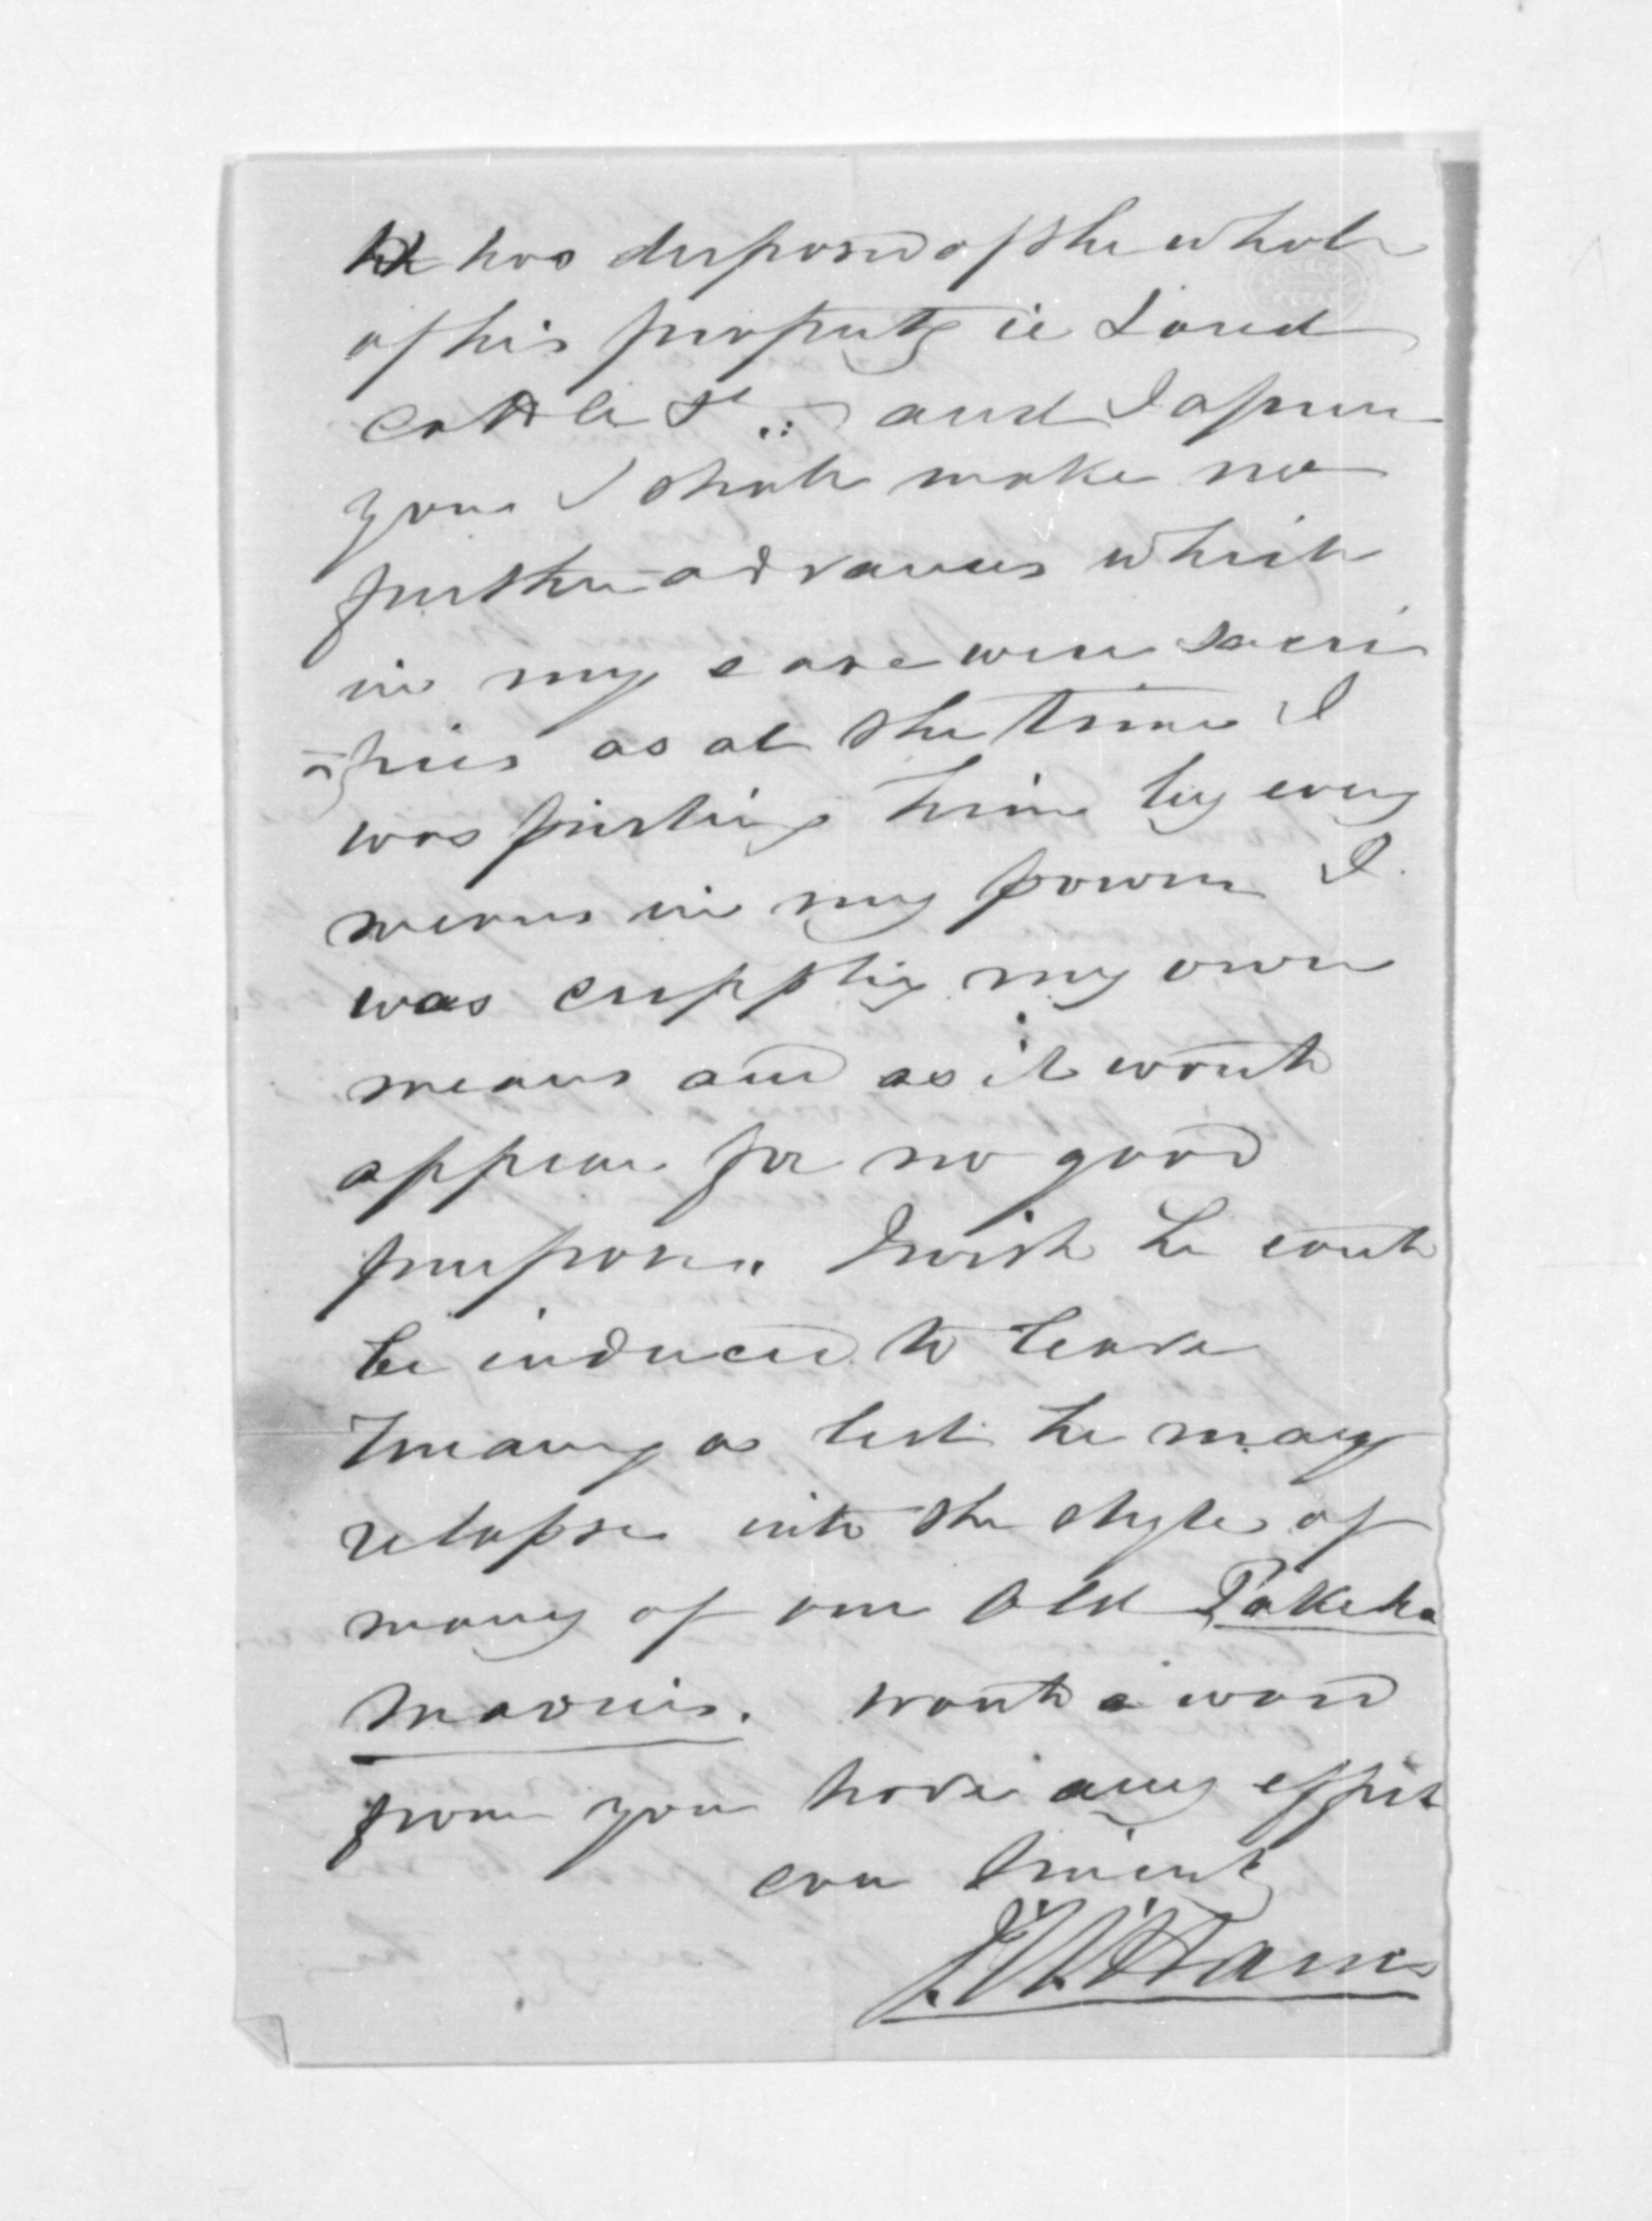 he has disposed of the whole
of his property ie Land
cattle &c.: and I assure
you I shall make no
further advances which
in my case were sacri
=fices as at the time I
was pushing him by every
means in my power I
was crippling my own
means and as it would
appear for no good
purpose. I wish he could
be induced to leave
Turanga lest he may
relapse into the style of
many of our old Pakeha
maories. Would a word
from you have any effect
ever sincerely